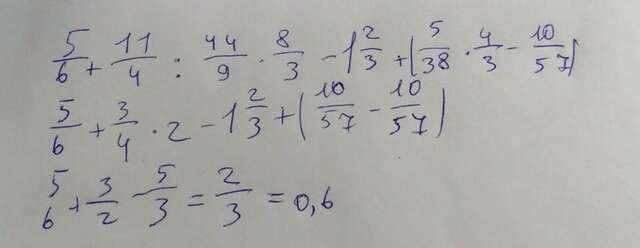 5/6 + 11/4 : 44/9 · 8/3 - 1 2/3 + (5/38 · 4/3 - 10/57)
5/6 + 3/4 · 2 - 1 2/3 + (10/57 - 10/57)
5/6 + 3/2 - 5/3 = 2/3 = 0,6